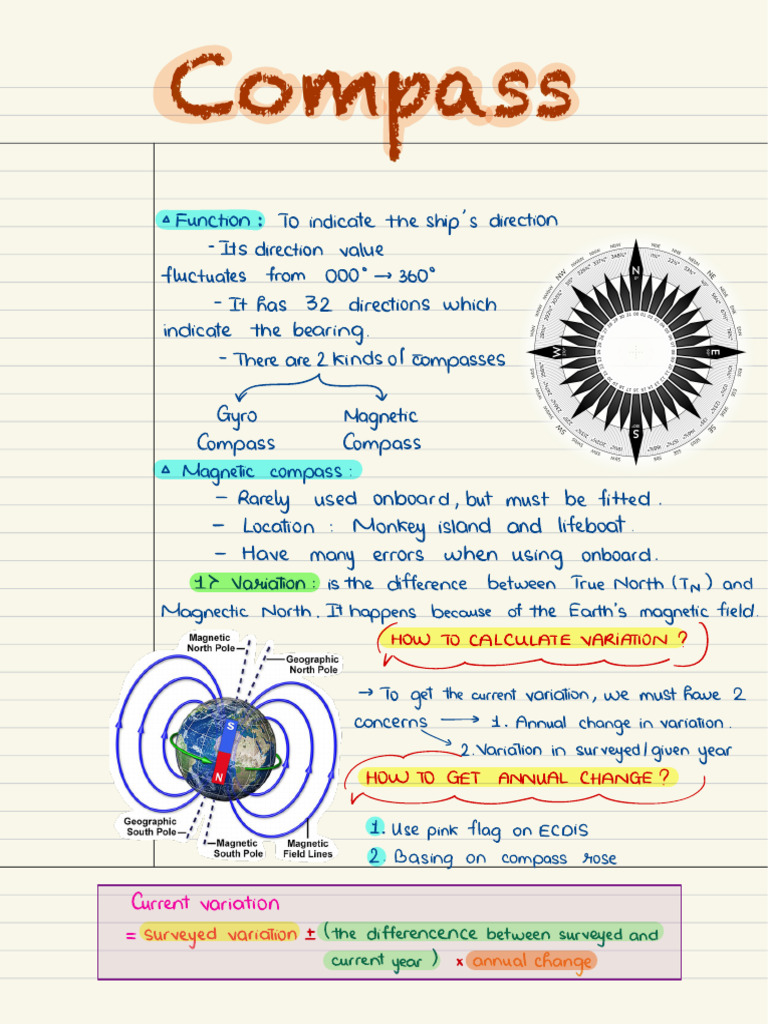 Compass
△ Function: To indicate the ship's direction
- Its direction value
fluctuates from 000° → 360°
- It has 32 directions which
indicate the bearing.
- There are 2 kinds of compasses
Gyro Magnetic
Compass Compass
N
E
S
W
NE
SE
SW
NW
△ Magnetic compass:
- Rarely used onboard, but must be fitted.
- Location : Monkey island and lifeboat.
- Have many errors when using onboard.
1> Variation: is the difference between True North (TN) and
Magnectic North. It happens because of the Earth's magnetic field.
Magnetic
North Pole
Geographic
North Pole
S
N
Geographic
South Pole
Magnetic
South Pole
Magnetic
Field Lines
HOW TO CALCULATE VARIATION?
→ To get the current variation, we must have 2
concerns → 1. Annual change in variation.
2. Variation in surveyed/given year
HOW TO GET ANNUAL CHANGE?
1. Use pink flag on ECDIS
2. Basing on compass rose
Current variation
= surveyed variation ± (the differencence between surveyed and
current year) x annual change